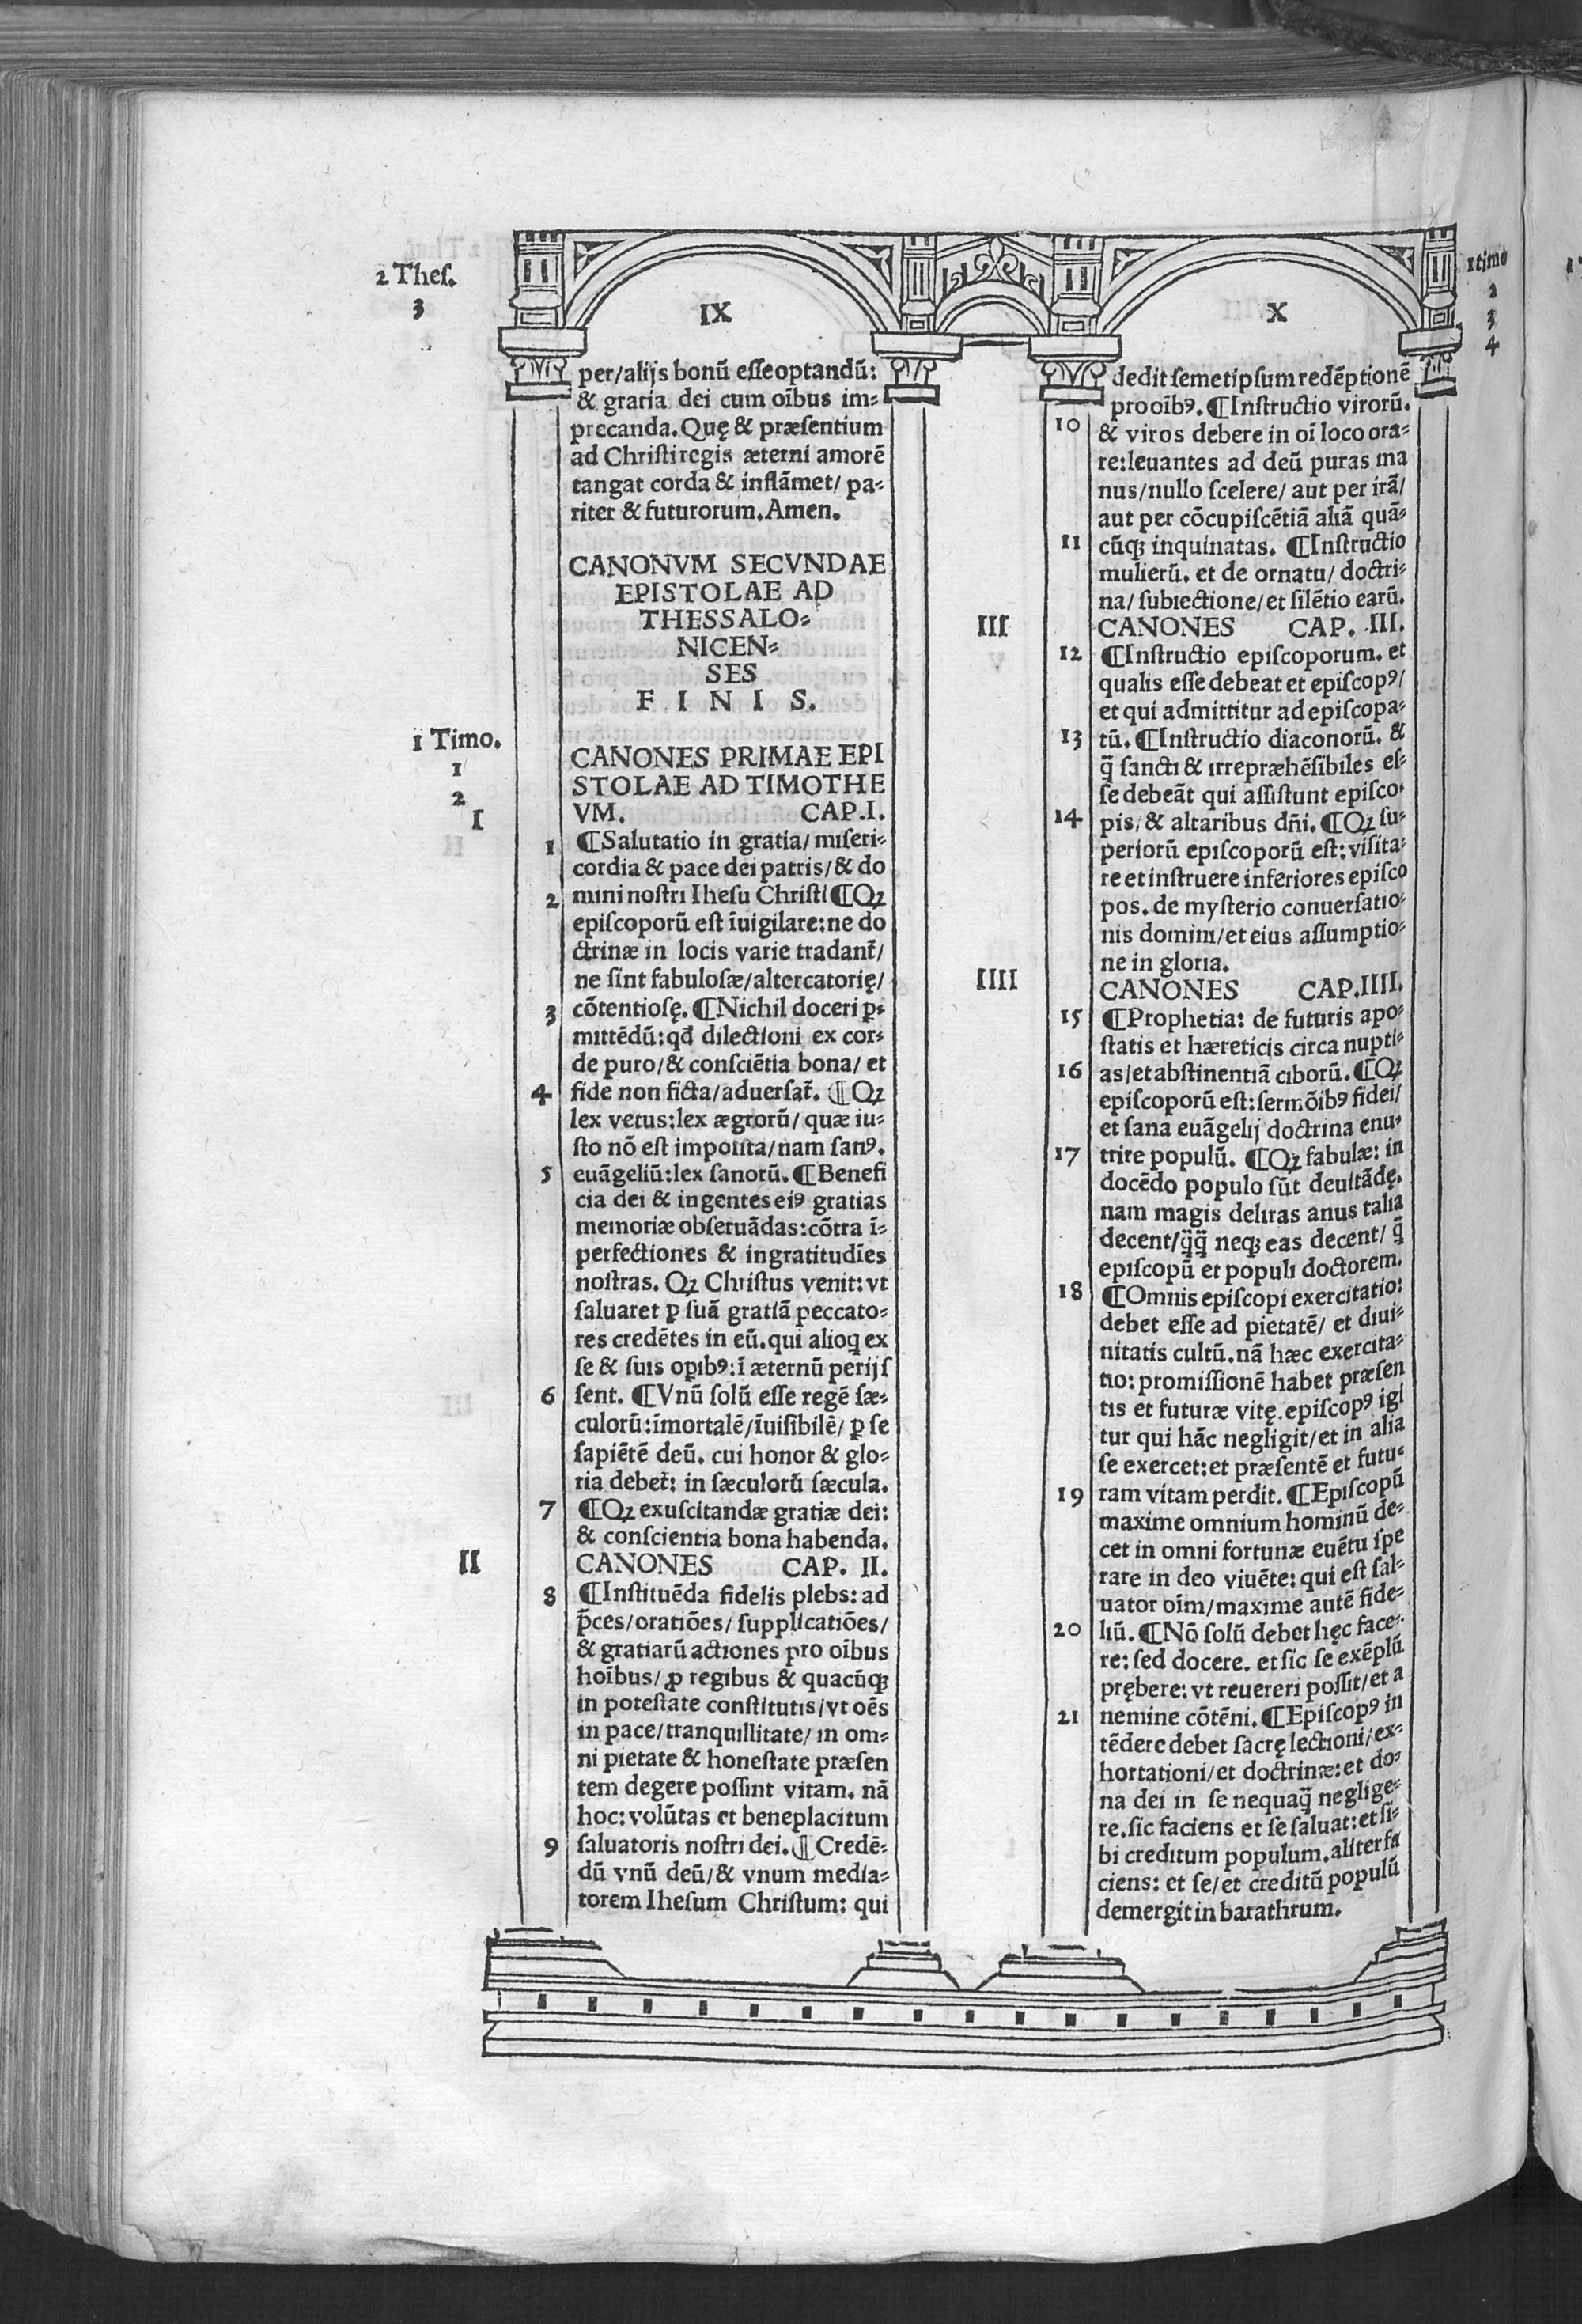 2 Thes.
3
IX
per/alijs bonū esse optandū:
& gratia dei cum oībus im-
precanda. Quę & præsentium
ad Christi regis æterni amorē
tangat corda & inflāmet/ pa-
riter & futurorum. Amen.
CANONVM SECVNDAE
EPISTOLAE AD
THESSALO-
NICEN-
SES
F I N I S.
1 Timo.
1
2
CANONES PRIMAE EPI
STOLAE AD TIMOTHE
I VM. CAP.I.
1 ¶Salutatio in gratia/ miseri-
cordia & pace dei patris/ & do
mini nostri Ihesu Christi ¶Qꝫ
2 episcoporū est īuigilare: ne do
ctrinæ in locis varie tradant̄/
ne sint fabulosæ/altercatorię/
3 cōtentiosę. ¶Nichil doceri ꝑ-
mittēdū: qđ dilectioni ex cor-
de puro/ & consciētia bona/ et
4 fide non ficta/ aduersat̄. ¶Qꝫ
lex vetus: lex ægrorū/ quæ iu-
sto nō est imposita/ nam sanꝰ.
5 euāgeliū: lex sanorū. ¶Benefi
cia dei & ingentes eiꝰ gratias
memoriæ obseruādas: cōtra ī-
perfectiones & ingratitudīes
nostras. Qꝫ Christus venit: vt
saluaret ꝑ suā gratiā peccato-
res credētes in eū. qui alioq̄ ex
se & suis oꝑibꝰ: ī æternū perijs
6 sent. ¶Vnū solū esse regē sæ-
culorū: īmortalē/ īuisibilē/ ꝑ se
sapiētē deū. cui honor & glo-
ria debet̄: in sæculorū sæcula.
7 ¶Qꝫ exuscitandæ gratiæ dei:
& conscientia bona habenda.
II CANONES CAP. II.
8 ¶Instituēda fidelis plebs: ad
p̄ces/ oratiōes/ supplicatiōes/
& gratiarū actiones pro oībus
hoībus/ ꝓ regibus & quacūqꝫ
in potestate constitutis/ vt oēs
in pace/ tranquillitate/ in om-
ni pietate & honestate præsen
tem degere possint vitam. nā
hoc: volūtas et beneplacitum
9 saluatoris nostri dei. ¶Credē-
dū vnū deū/ & vnum media-
torem Ihesum Christum: qui
1 timo
2
3
4
X
dedit semetipsum redēptionē
pro oībꝰ. ¶Instructio virorū.
10 & viros debere in oī loco ora-
re: leuantes ad deū puras ma
nus/ nullo scelere/ aut per irā/
aut per cōcupiscētiā aliā quā-
11 cūqꝫ inquinatas. ¶Instructio
mulierū. et de ornatu/ doctri-
na/ subiectione/ et silētio earū.
III CANONES CAP. III.
12 ¶Instructio episcoporum. et
qualis esse debeat et episcopꝰ/
et qui admittitur ad episcopa-
13 tū. ¶Instructio diaconorū. &
q̄ sancti & irrepræhēsibiles es-
se debeāt qui assistunt episco-
14 pis/ & altaribus dn̄i. ¶Qꝫ su-
periorū episcoporū est: visita-
re et instruere inferiores episco
pos. de mysterio conuersatio-
nis domini/ et eius assumptio-
ne in gloria.
IIII CANONES CAP.IIII.
15 ¶Prophetia: de futuris apo-
statis et hæreticis circa nupti-
16 as/ et abstinentiā ciborū. ¶Qꝫ
episcoporū est: sermōibꝰ fidei/
et sana euāgelij doctrina enu-
17 trire populū. ¶Qꝫ fabulæ: in
docēdo populo sūt deuitādę.
nam magis deliras anus talia
decent/ q̄q̄ neqꝫ eas decent/ q̄
episcopū et populi doctorem.
18 ¶Omnis episcopi exercitatio:
debet esse ad pietatē/ et diui-
nitatis cultū. nā hæc exercita-
tio: promissionē habet præsen
tis et futuræ vitę. episcopꝰ igi
tur qui hāc negligit/ et in alia
se exercet: et præsentē et futu-
19 ram vitam perdit. ¶Episcopū
maxime omnium hominū de-
cet in omni fortunæ euētu spe
rare in deo viuēte: qui est sal-
uator oīm/ maxime autē fide-
20 liū. ¶Nō solū debet hęc face-
re: sed docere. et sic se exēplū
prębere: vt reuereri possit/ et a
21 nemine cōtēni. ¶Episcopꝰ in
tēdere debet sacrę lectioni/ ex-
hortationi/ et doctrinæ: et do-
na dei in se nequaq̄ neglige-
re. sic faciens et se saluat: et si-
bi creditum populum. aliter fa
ciens: et se/ et creditū populū
demergit in barathrum.